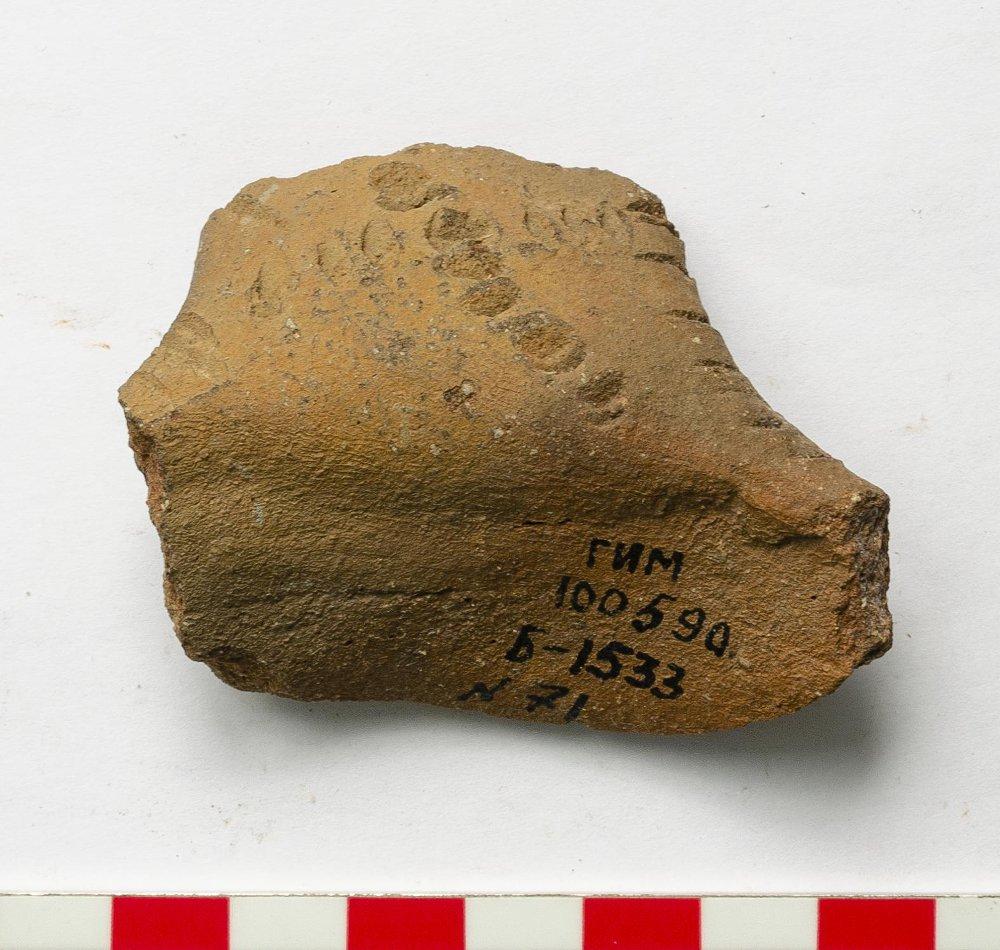 ГИМ
100590
Б-1533
N 71